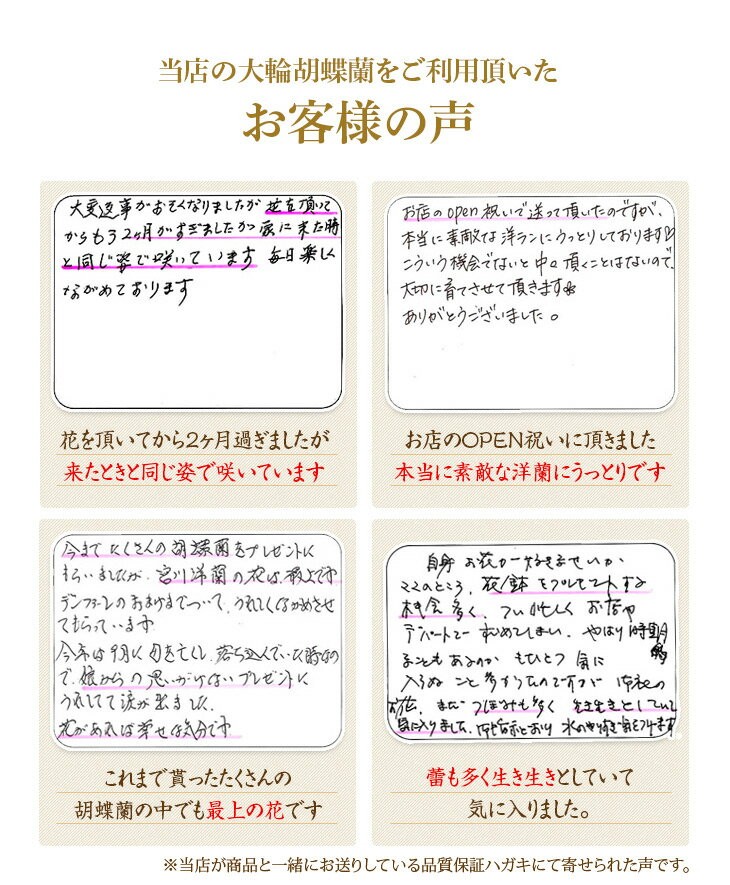 当店の大輪胡蝶蘭をご利用頂いた
お客様の声
大変返事がおそくなりましたが 花を頂いて
からもう2ヶ月がすぎましたが 家に来た時
と同じ姿で咲いています 毎日楽しく
ながめております
花を頂いてから2ヶ月過ぎましたが
来たときと同じ姿で咲いています
お店のopen祝いで送って頂いたのですが、
本当に素敵な洋ランにうっとりしております♡
こういう機会でないと中々頂くことはないので、
大切に育てさせて頂きます
ありがとうございました。
お店のOPEN祝いに頂きました
本当に素敵な洋蘭にうっとりです
今まで たくさんの胡蝶蘭をプレゼントに
もらいましたが、宮川洋蘭の花は最上です
デンファーレのおまけまでついて、うれしくながめさせ
てもらっています
今年は9月に母を亡くし、落ち込んでいた時なの
で、娘からの思いがけないプレゼントに
うれしくて涙が出ました。
花があれば幸せな気分です
これまで貰ったたくさんの
胡蝶蘭の中でも最上の花です
自身 お花が好きなせいか
ここのところ、花/鉢をプレゼントする
機会多く、つい忙しく お店や
デパートで すませてしまい、やはり時期
ることもあるのか もひとつ 気に
入らぬこと多かったのですが
お花、まだ つぼみも多く 生き生きとしていて
気に入りました。 水のやりすぎ気をつけます
蕾も多く生き生きとしていて
気に入りました。
※当店が商品と一緒にお送りしている品質保証ハガキにて寄せられた声です。